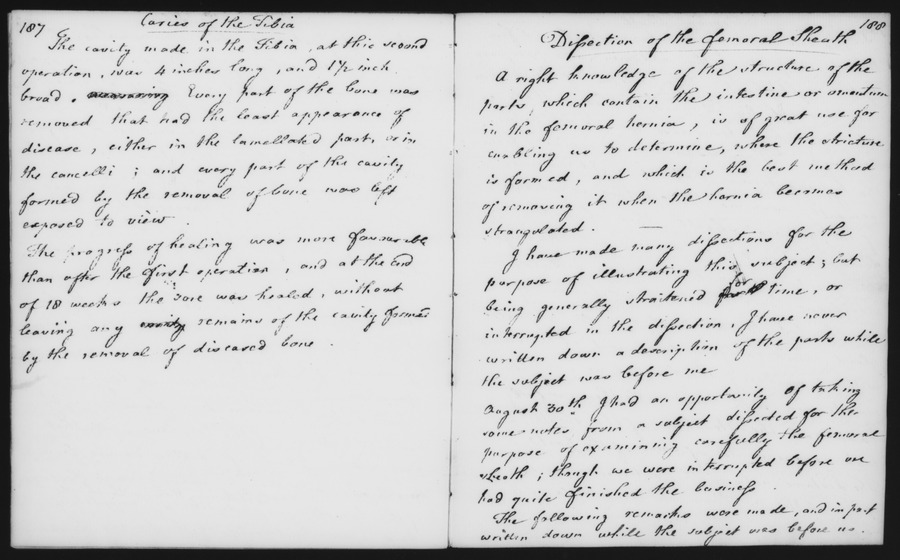 187
Caries of the Tibia
The cavity made in the Tibia, at this second
operation, was 4 inches long, and 1½ inch
broad. Every part of the bone was
removed that had the least appearance of
disease, either in the lamellated part, or in
the cancelli; and every part of the cavity
formed by the removal of bone was left
exposed to view.
The progress of healing was more favourable
than after the first operation, and at the end
of 18 weeks the sore was healed, without
leaving any remains of the cavity formed
by the removal of diseased bone.
188
Dissection of the femoral Sheath
A right knowledge of the structure of the
parts, which contain the intestine or omentum
in the femoral hernia, is of great use for
enabling us to determine, where the stricture
is formed, and which is the best method
of removing it when the hernia becomes
strangulated.
I have made many dissections for the
purpose of illustrating this subject; but
being generally straitened for time, or
interrupted in the dissection, I have never
written down a description of the parts while
the subject was before me
August 30th I had an opportunity of taking
some notes from a subject dissected for the
purpose of examining carefully the femoral
sheath; though we were interrupted before we
had quite finished the business.
The following remarks were made, and in part
written down while the subject was before us.